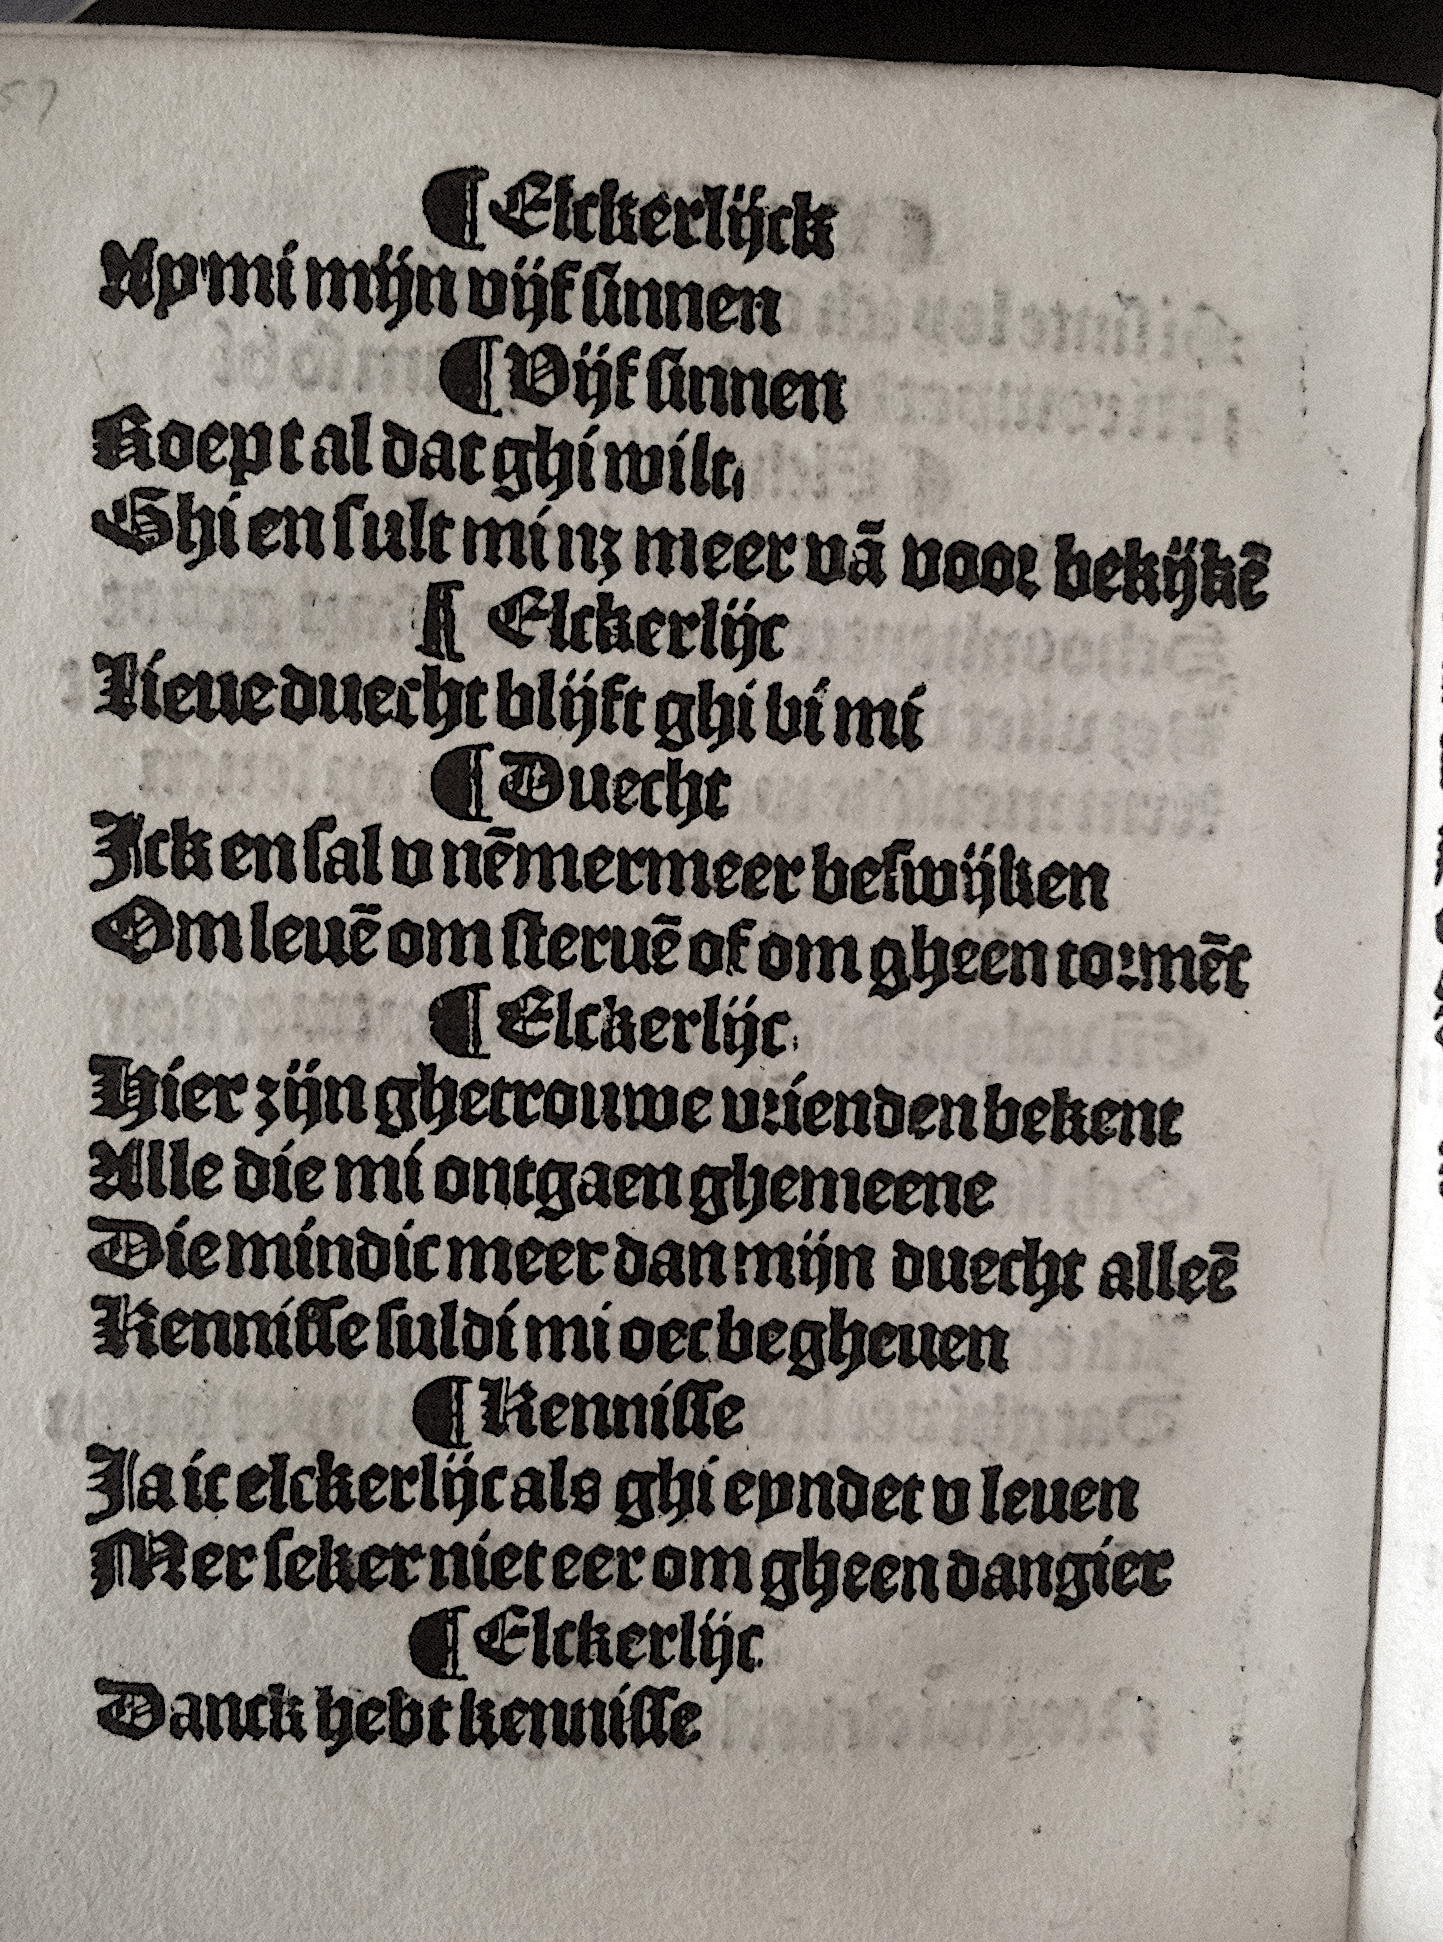 ¶ Elckerlijck
Ay mi mijn vijf sinnen
¶ Vijf sinnen
Roept al dat ghi wilt
Ghi en sult mi nz meer vā voor bekijkē
¶ Elckerlijc
Lieue duecht blijft ghi bi mi
¶ Duecht
Jck en sal v nēmermeer beswijken
Om leuē om steruē of om gheen tormēt
¶ Elckerlijc
Hier zijn ghetrouwe vrienden bekent
Alle die mi ontgaen ghemeene
Die mindic meer dan mijn duecht alleē
Kennisse suldi mi oec begheuen
¶ Kennisse
Ja ic elckerlijc als ghi eyndet v leuen
Mer seker niet eer om gheen dangier
¶ Elckerlijc
Danck hebt kennisse